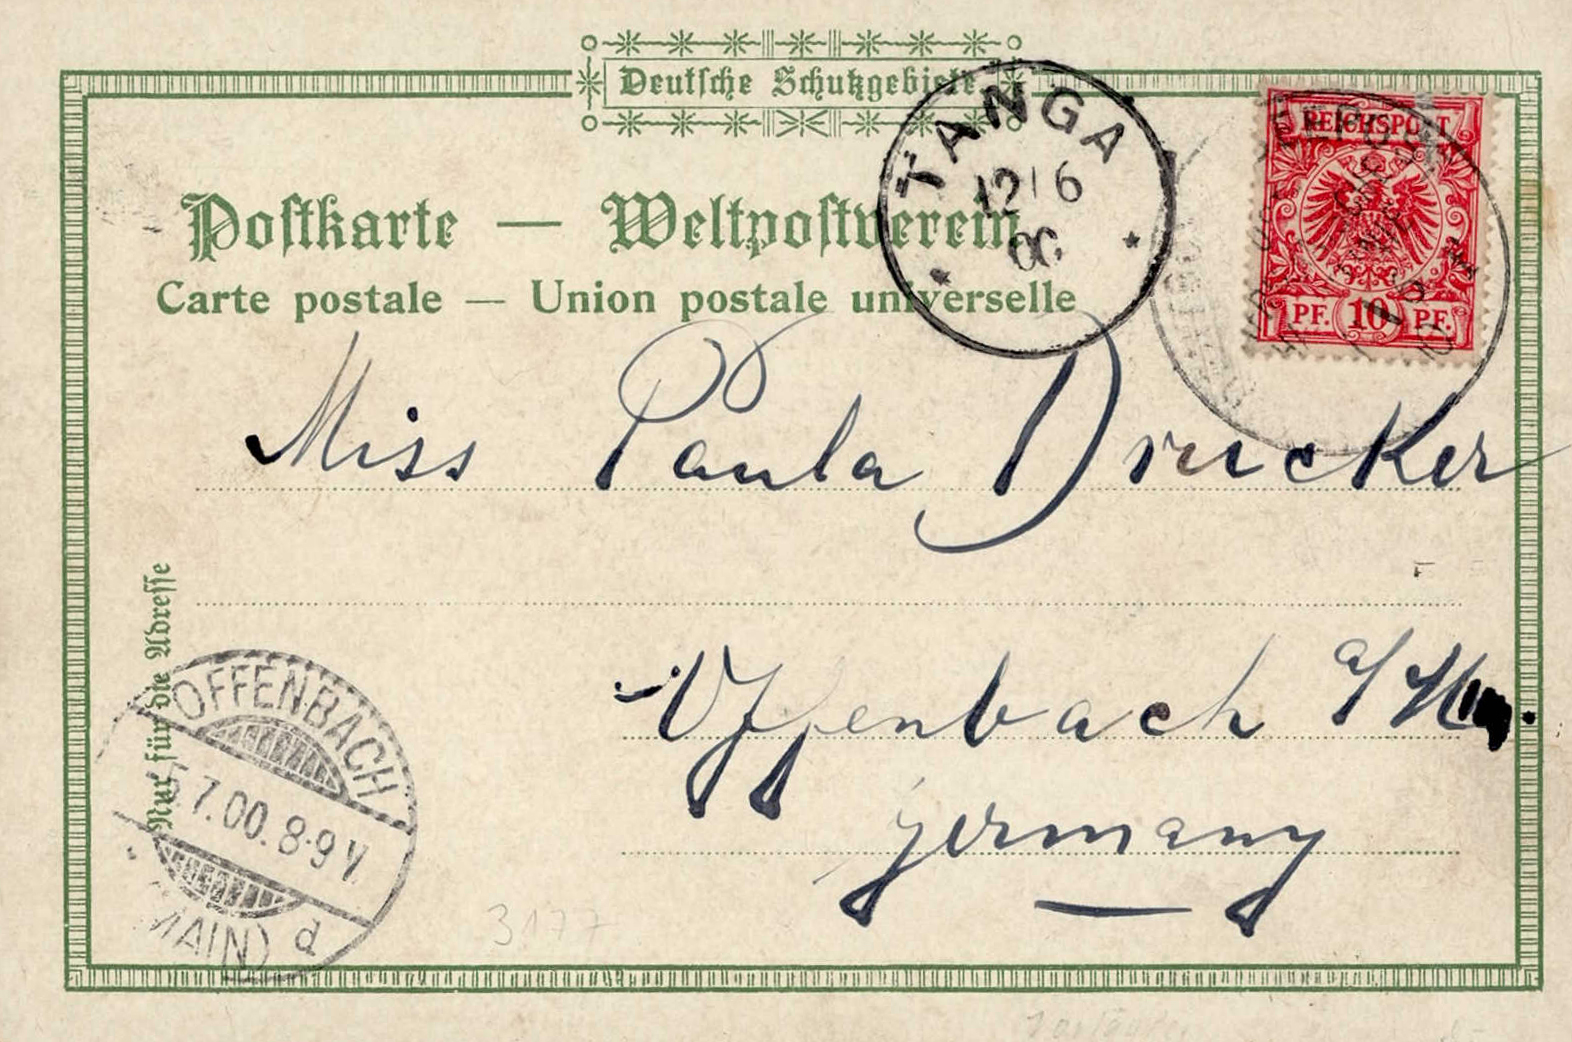 Deutsche Schutzgebiete
TANGA
12 6
00
REICHSPOST
PF. 10 PF.
Postkarte — Weltpostverein
Carte postale — Union postale universelle
Miss Paula Drucker
Offenbach a/M
Germany
Nur für die Adresse
OFFENBACH
7.00. 8-9 V.
(MAIN) d
3177